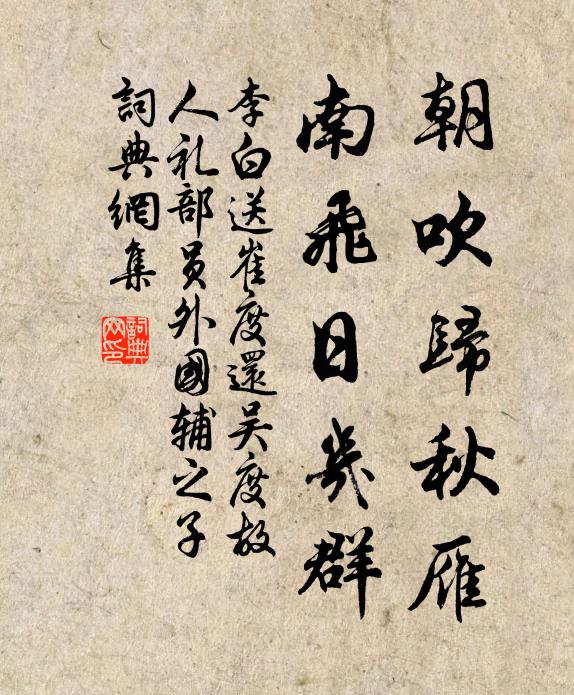 朝吹歸秋雁
南飛日幾群
李白送崔度還吳度故
人礼部員外國辅之子
詞典網集
詞典
网印